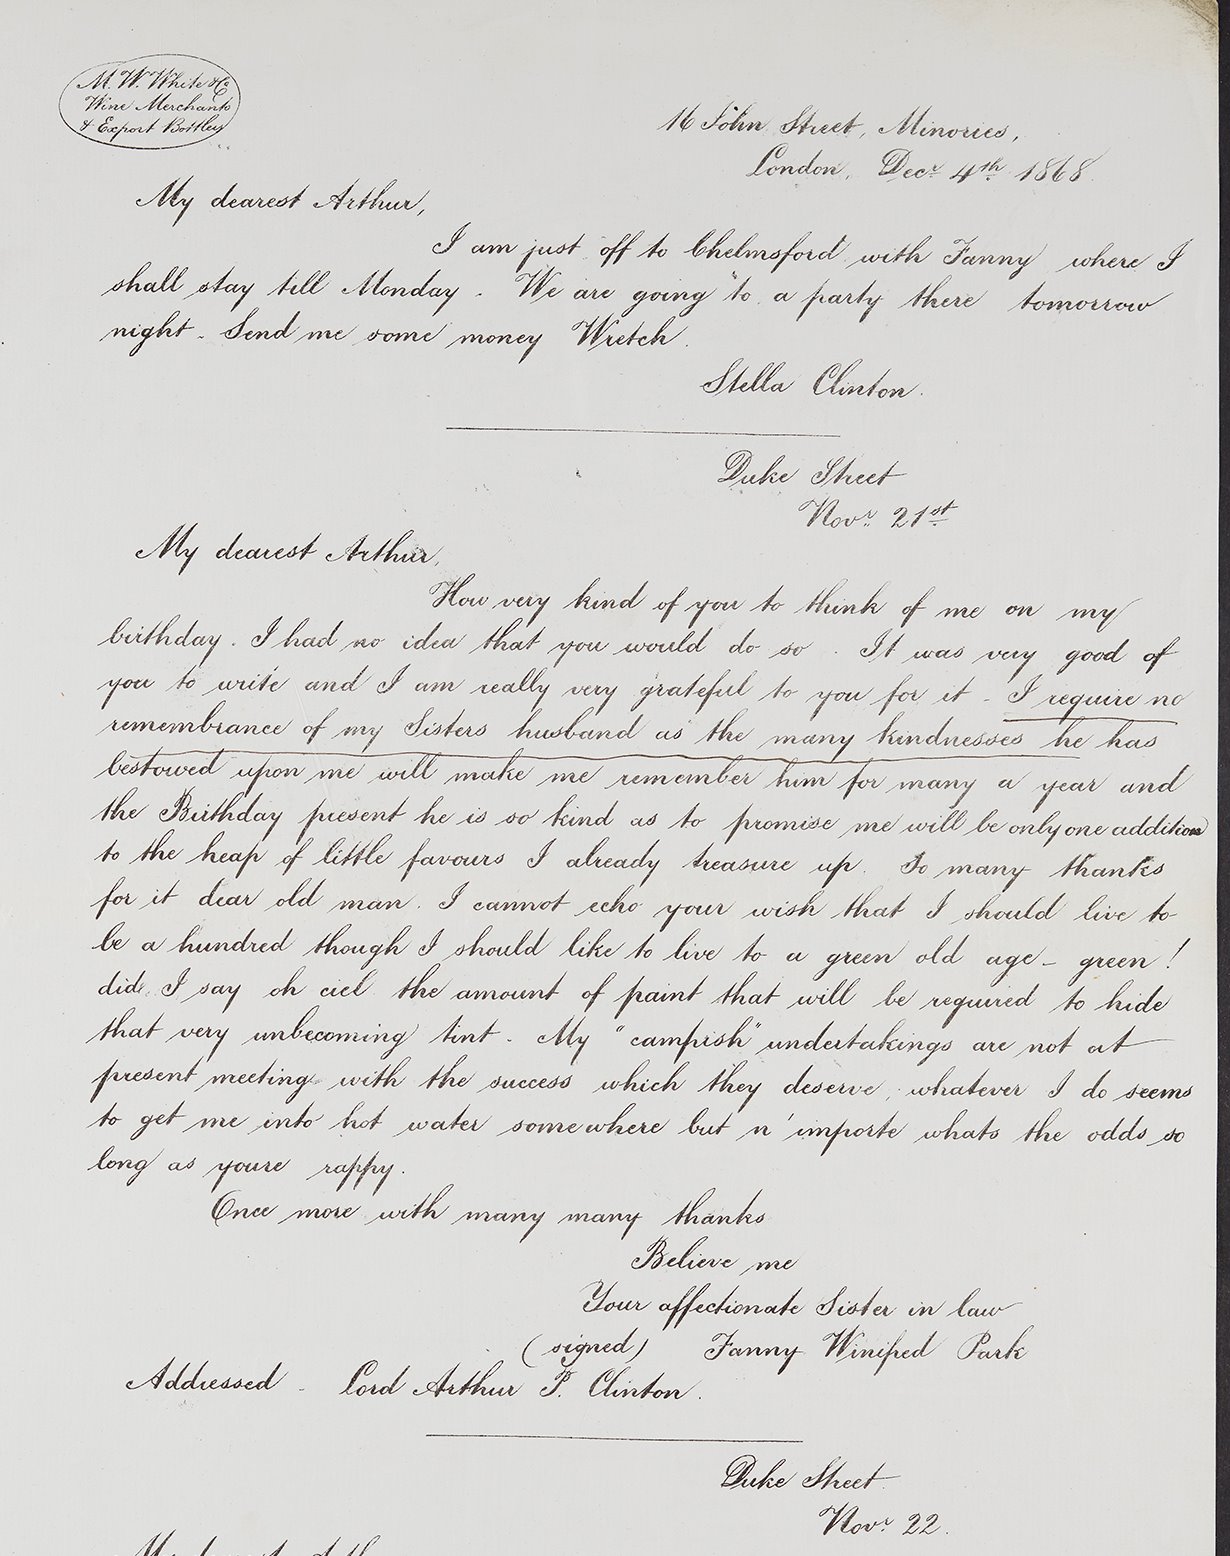 M. W. White & Co
Wine Merchants
& Export Bottlers
16 John Street, Minories,
London, Decr 4th 1868
My dearest Arthur,
I am just off to Chelmsford with Fanny where I
shall stay till Monday. We are going to a party there tomorrow
night. Send me some money Wretch.
Stella Clinton.
Duke Street
Novr 21st
My dearest Arthur,
How very kind of you to think of me on my
birthday. I had no idea that you would do so. It was very good of
you to write and I am really very grateful to you for it. I require no
remembrance of my Sisters husband as the many kindnesses he has
bestowed upon me will make me remember him for many a year and
the Birthday present he is so kind as to promise me will be only one addition
to the heap of little favours I already treasure up. So many thanks
for it dear old man. I cannot echo your wish that I should live to
be a hundred though I should like to live to a green old age - green!
did I say oh ciel the amount of paint that will be required to hide
that very unbecoming tint. My "campish" undertakings are not at
present meeting with the success which they deserve, whatever I do seems
to get me into hot water somewhere but n'importe whats the odds so
long as youre rappy.
Once more with many many thanks
Believe me
Your affectionate Sister in law
(signed) Fanny Winifred Park
Addressed - Lord Arthur P. Clinton.
Duke Street.
Novr 22.